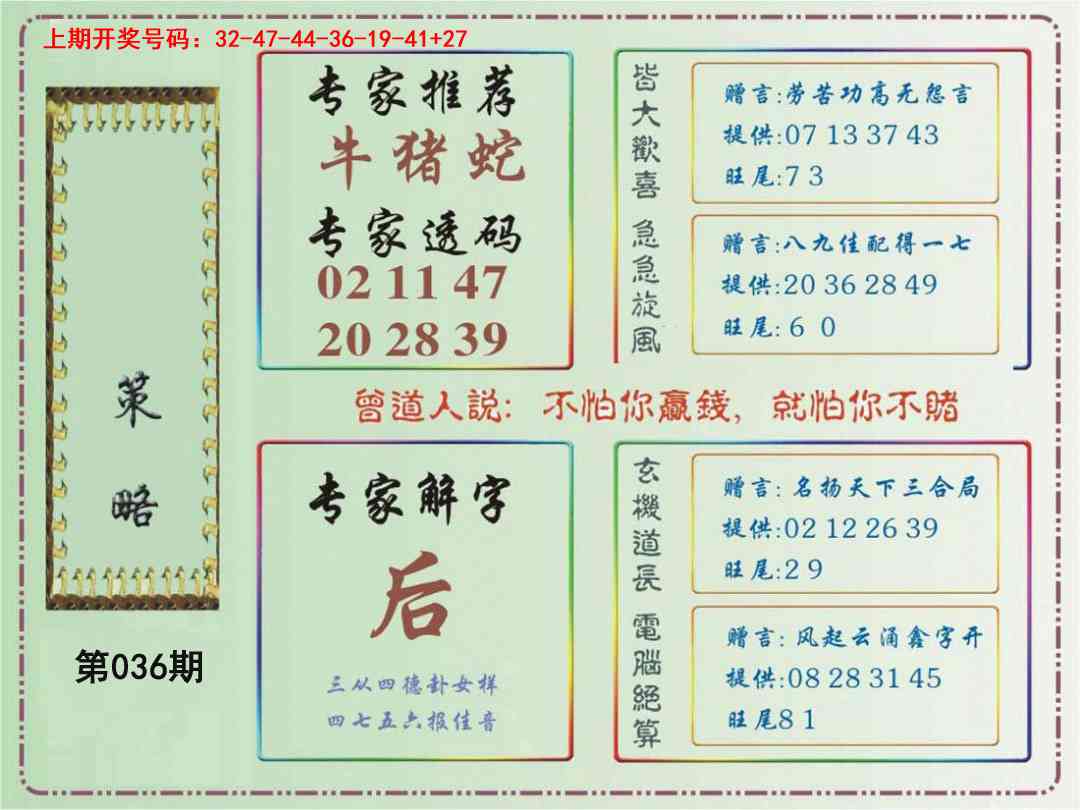 上期开奖号码：32-47-44-36-19-41+27
策略
第036期
专家推荐
牛猪蛇
专家透码
02 11 47
20 28 39
皆大歡喜
赠言:劳苦功高无怨言
提供:07 13 37 43
旺尾:7 3
急急旋風
赠言:八九佳配得一七
提供:20 36 28 49
旺尾: 6 0
曾道人説: 不怕你贏錢, 就怕你不賭
专家解字
后
三从四德卦女样
四七五六报佳音
玄機道長
赠言: 名扬天下三合局
提供:02 12 26 39
旺尾:2 9
電腦絕算
赠言: 风起云涌鑫字开
提供:08 28 31 45
旺尾8 1